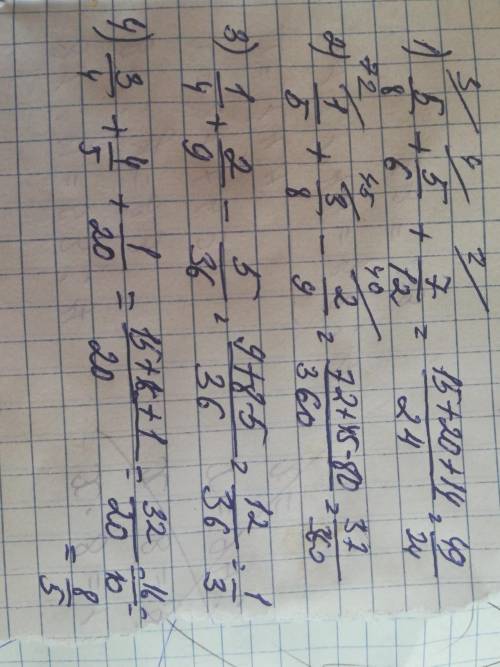 1) 5/8 (3/) + 5/6 (4/) + 7/12 (2/) = 15+20+14/24 = 49/24
2) 1/5 (72/) + 3/8 (45/) - 2/9 (40/) = 72+45-80/360 = 37/
3) 1/4 + 2/9 - 5/36 = 9+8-5/36 = 12/36 = 1/3
4) 3/4 + 4/5 + 1/20 = 15+16+1/20 = 32/20 = 16/10 =
= 8/5